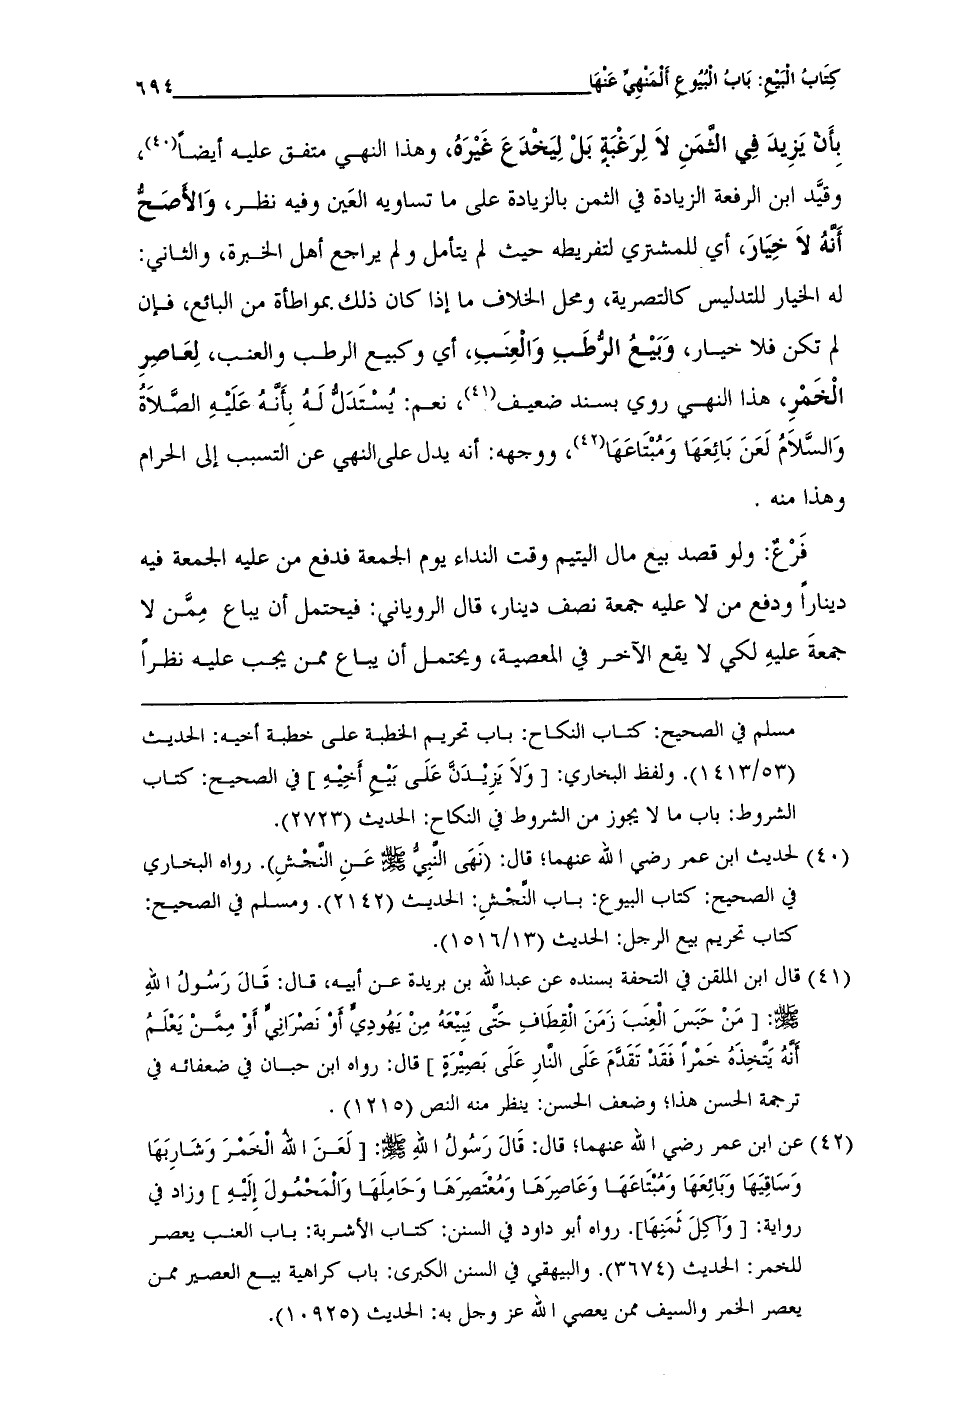 كِتَابُ الْبَيْعِ: بَابُ الْبُيُوعِ اَلْمَنْهِيِّ عَنْهَا ٦٩٤
بِأَنْ يَزِيدَ فِي الثَّمَنِ لَا لِرَغْبَةٍ بَلْ لِيَخْدَعَ غَيْرَهُ، وهذا النهي متفق عليه أيضاً(٤٠)،
وقيَّد ابن الرفعة الزيادة في الثمن بالزيادة على ما تساويه العَين وفيه نظر، وَالأَصَحُّ
أَنَّهُ لاَ خِيَارَ، أي للمشتري لتفريطه حيث لم يتأمل ولم يراجع أهل الخبرة، والثاني:
له الخيار للتدليس كالتصرية، ومحل الخلاف ما إذا كان ذلك بمواطأة من البائع، فإن
لم تكن فلا خيار، وَبَيْعُ الرُّطَبِ وَالْعِنَبِ، أي وكبيع الرطب والعنب، لِعَاصِرِ
الْخَمْرِ، هذا النهي روي بسند ضعيف(٤١)، نعم: يُسْتَدَلُّ لَهُ بِأَنَّهُ عَلَيْهِ الصَّلاَةُ
وَالسَّلاَمُ لَعَنَ بَائِعَهَا وَمُبْتَاعَهَا(٤٢)، ووجهه: أنه يدل على النهي عن التسبب إلى الحرام
وهذا منه .
فَرْعٌ: ولو قصد بيع مال اليتيم وقت النداء يوم الجمعة فدفع من عليه الجمعة فيه
ديناراً ودفع من لا عليه جمعة نصف دينار، قال الروياني: فيحتمل أن يباع مِمَّن لا
جمعةَ عليهِ لكي لا يقع الآخر في المعصية، ويحتمل أن يباع ممن يجب عليه نظراً
مسلم في الصحيح: كتاب النكاح: باب تحريم الخطبة على خطبة أخيه: الحديث
(١٤١٣/٥٣). ولفظ البخاري: [ وَلاَ يَزِيْدَنَّ عَلَى بَيْعِ أَخِيْهِ ] في الصحيح: كتاب
الشروط: باب ما لا يجوز من الشروط في النكاح: الحديث (٢٧٢٣).
(٤٠) لحديث ابن عمر رضي الله عنهما؛ قال: (نَهَى النَّبِيُّ ﷺ عَنِ النَّجْشِ). رواه البخاري
في الصحيح: كتاب البيوع: باب النَّجْشِ: الحديث (٢١٤٢). ومسلم في الصحيح:
كتاب تحريم بيع الرجل: الحديث (١٥١٦/١٣).
(٤١) قال ابن الملقن في التحفة بسنده عن عبدالله بن بريدة عن أبيه، قال: قَالَ رَسُولُ اللهِ
ﷺ: [ مَنْ حَبَسَ الْعِنَبَ زَمَنَ الْقِطَافِ حَتَّى يَبِيْعَهُ مِنْ يَهُودِيٍّ أَوْ نَصْرَانِيٍّ أَوْ مِمَّنْ يَعْلَمُ
أَنَّهُ يَتَّخِذُهُ خَمْراً فَقَدْ تَقَدَّمَ عَلَى النَّارِ عَلَى بَصِيْرَةٍ ] قال: رواه ابن حبان في ضعفائه في
ترجمة الحسن هذا؛ وضعف الحسن: ينظر منه النص (١٢١٥) .
(٤٢) عن ابن عمر رضي الله عنهما؛ قال: قَالَ رَسُولُ اللهِ ﷺ: [ لَعَنَ اللهُ الْخَمْرَ وَشَارِبَهَا
وَسَاقِيَهَا وَبَائِعَهَا وَمُبْتَاعَهَا وَعَاصِرَهَا وَمُعْتَصِرَهَا وَحَامِلَهَا وَالْمَحْمُولَ إِلَيْهِ ] وزاد في
رواية: [ وَآكِلَ ثَمَنِهَا]. رواه أبو داود في السنن: كتاب الأشربة: باب العنب يعصر
للخمر: الحديث (٣٦٧٤). والبيهقي في السنن الكبرى: باب كراهية بيع العصير ممن
يعصر الخمر والسيف ممن يعصي الله عز وجل به: الحديث (١٠٩٢٥).